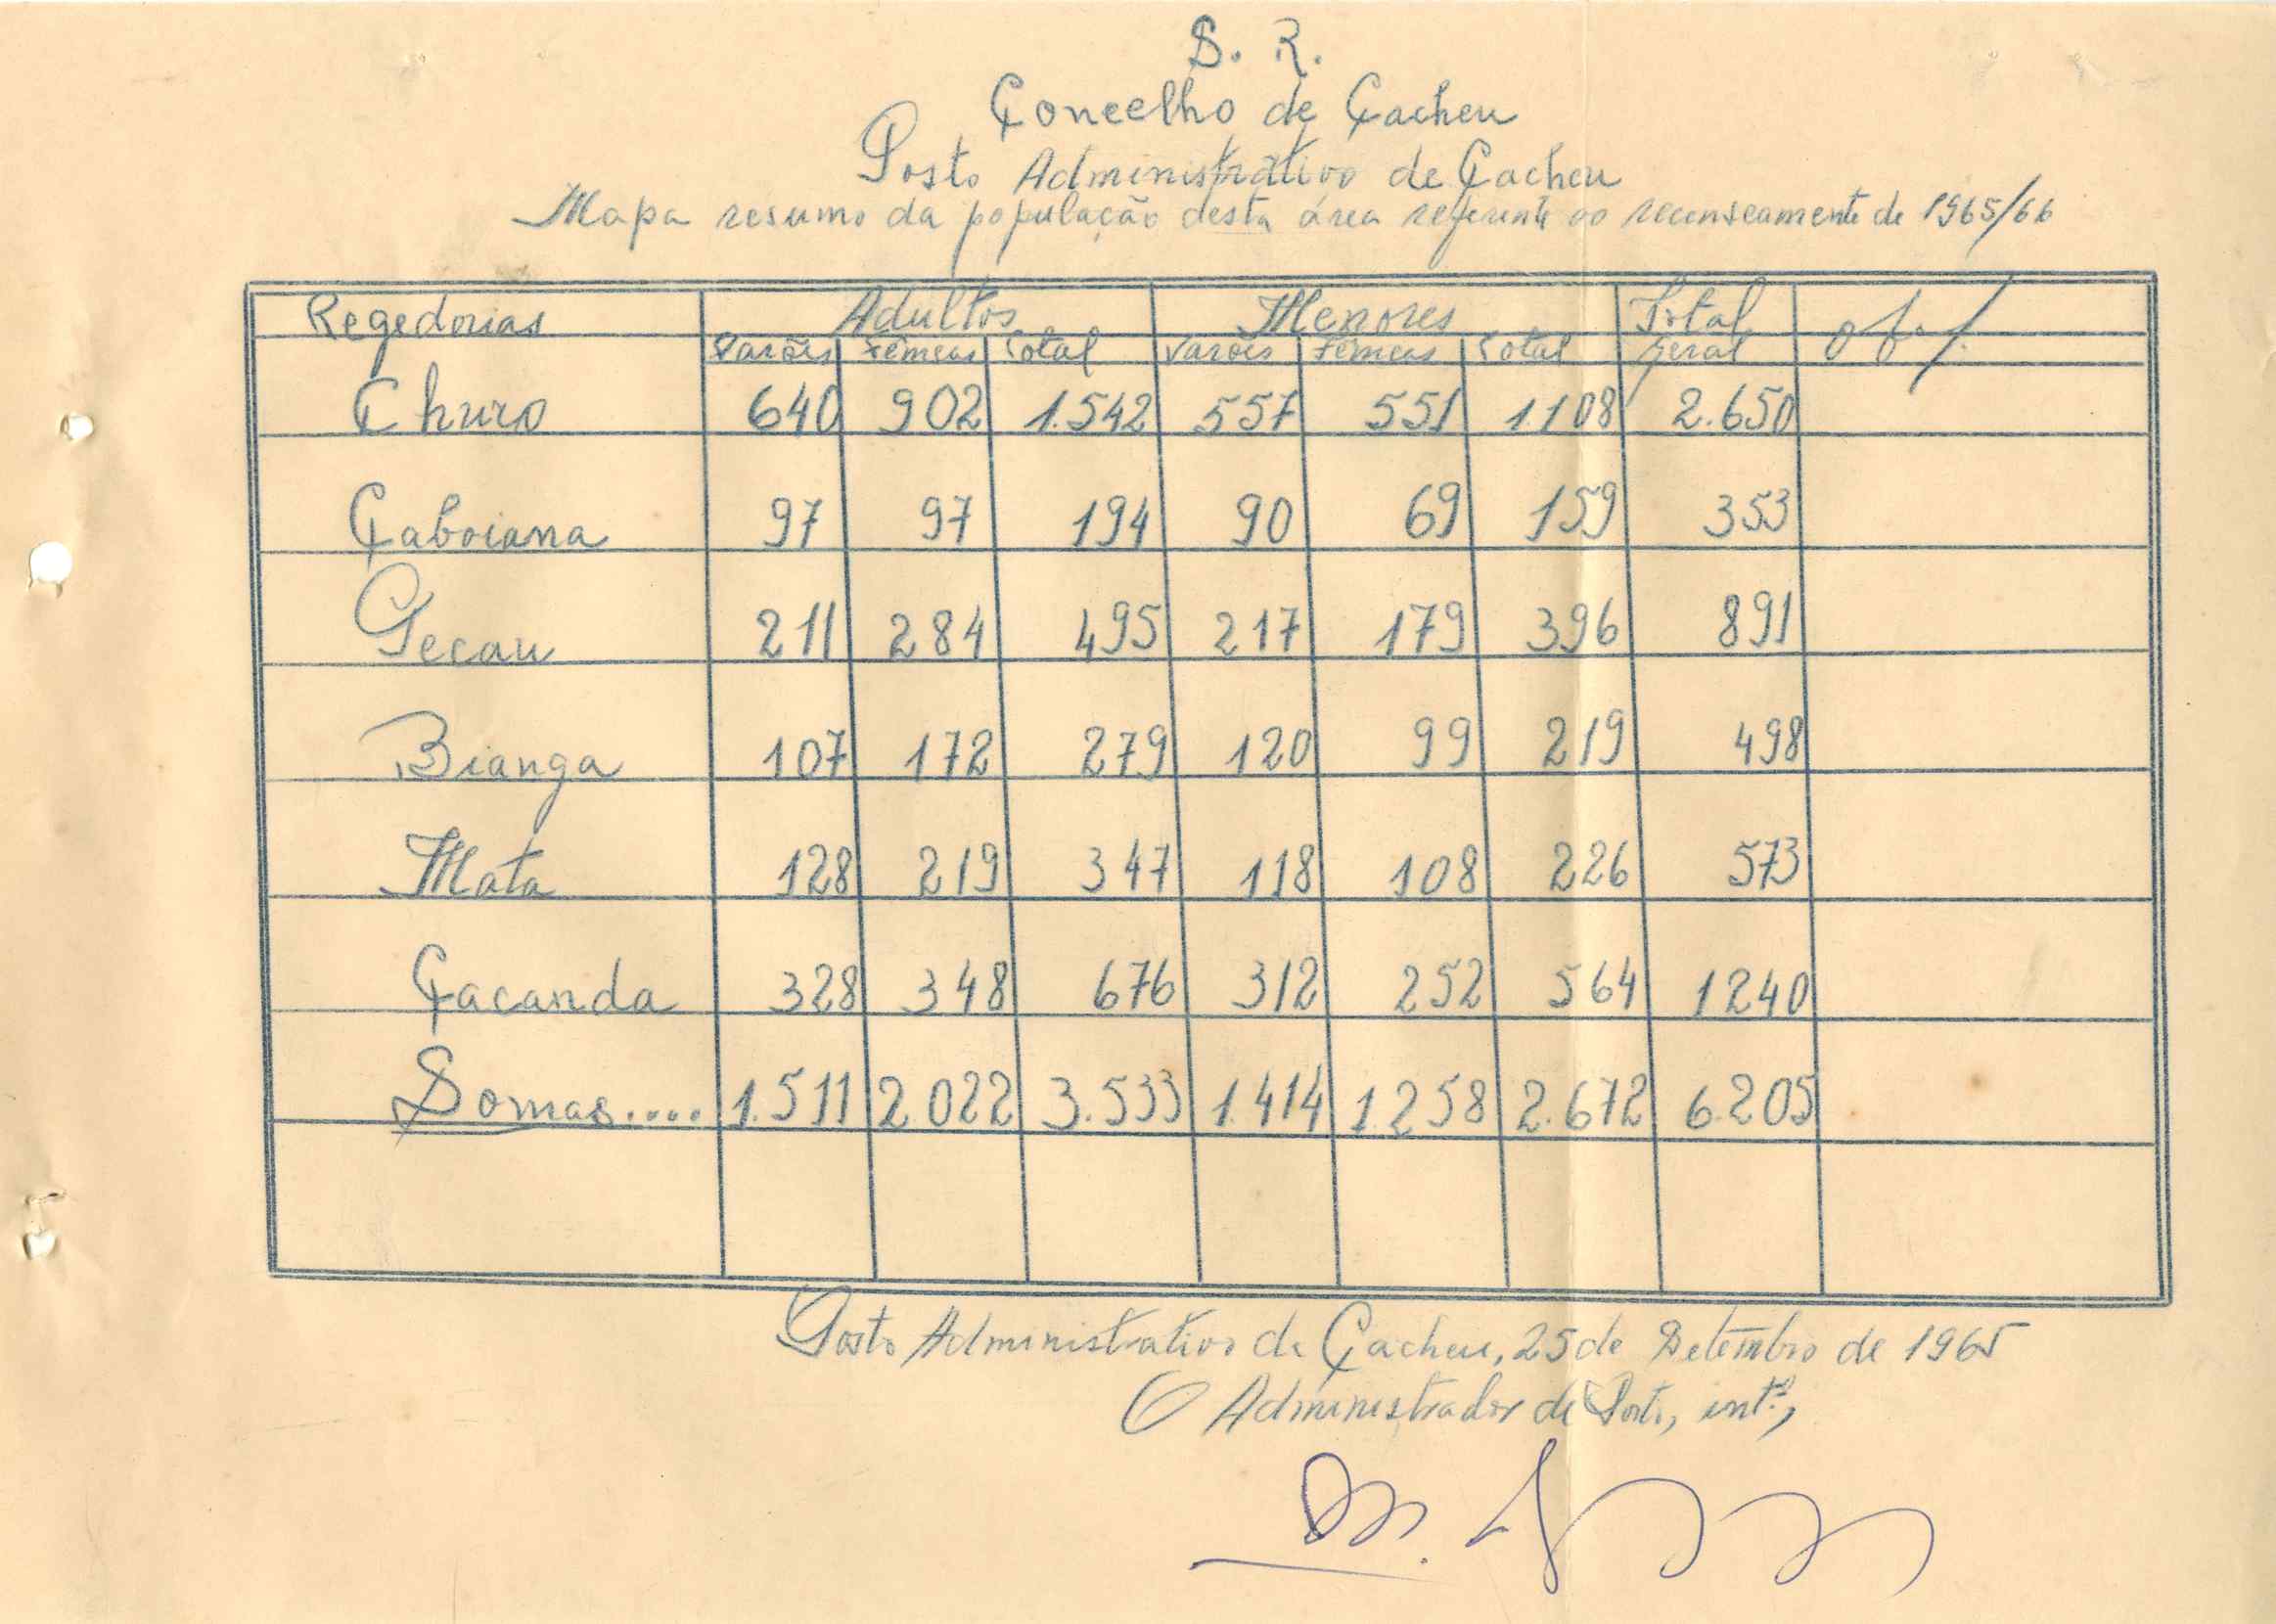 S. R.
Concelho de Cacheu
Posto Administrativo de Cacheu
Mapa resumo da população desta área referente ao recenseamento de 1965/66
Regedorias Adultos Menores Total geral
Varões Fêmeas Total Varões Fêmeas Total
Churo 640 902 1.542 557 551 1.108 2.650
Caboiana 97 97 194 90 69 159 353
Pecau 211 284 495 217 179 396 891
Bianga 107 172 279 120 99 219 498
Mata 128 219 347 118 108 226 573
Cacanda 328 348 676 312 252 564 1240
Somas.... 1.511 2.022 3.533 1.414 1.258 2.672 6.205
Posto Administrativo de Cacheu, 25 de Setembro de 1965
O Administrador de Posto, intº,